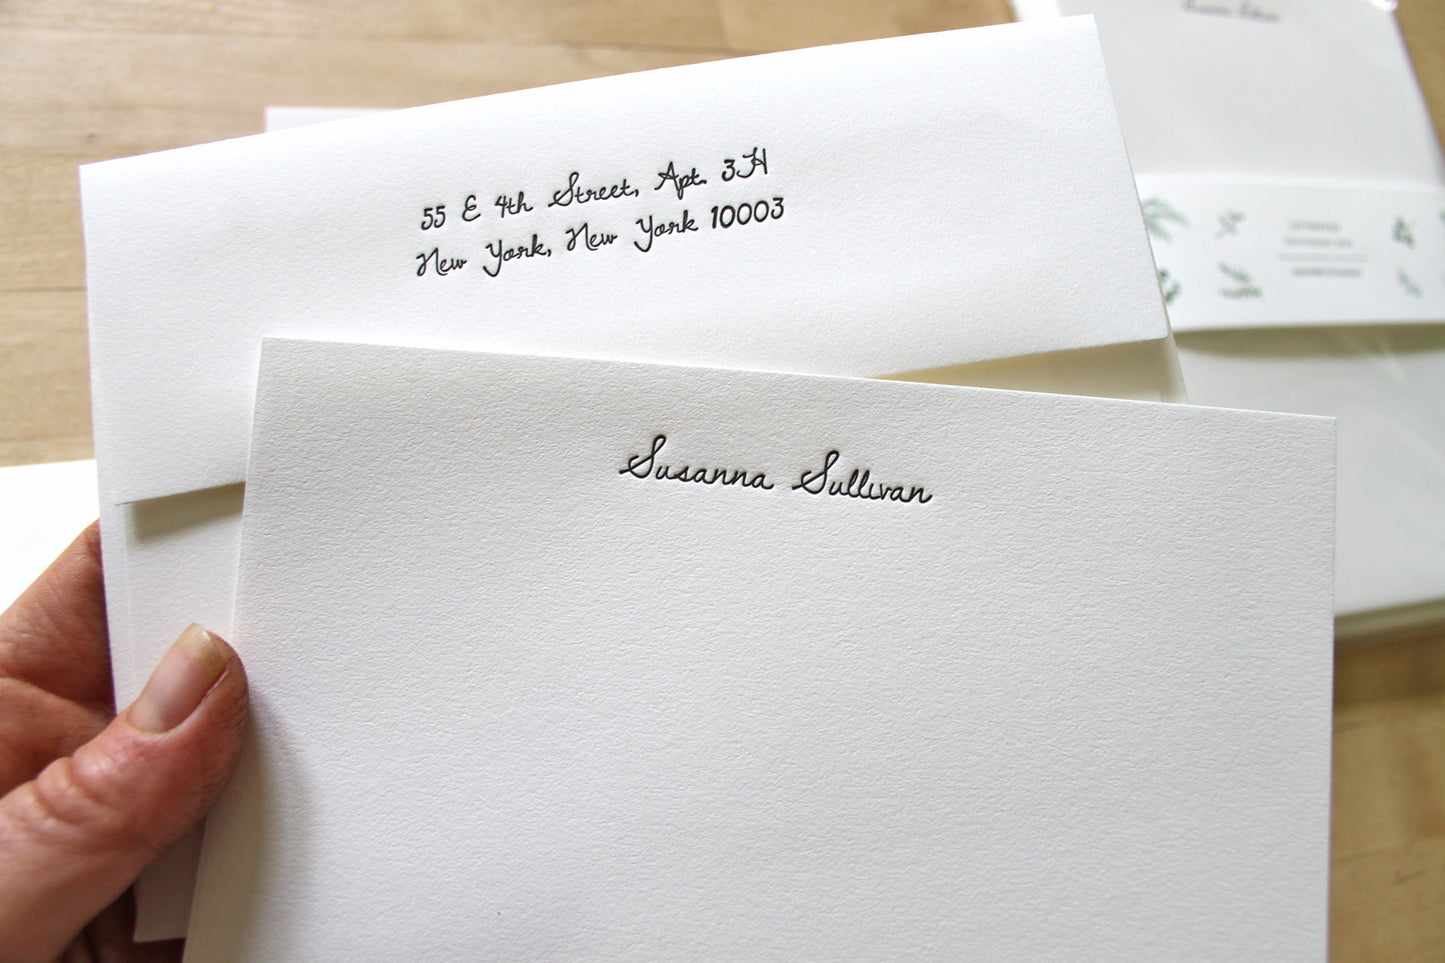 55 E 4th Street, Apt. 3H
New York, New York 10003
Susanna Sullivan
Susanna Sullivan